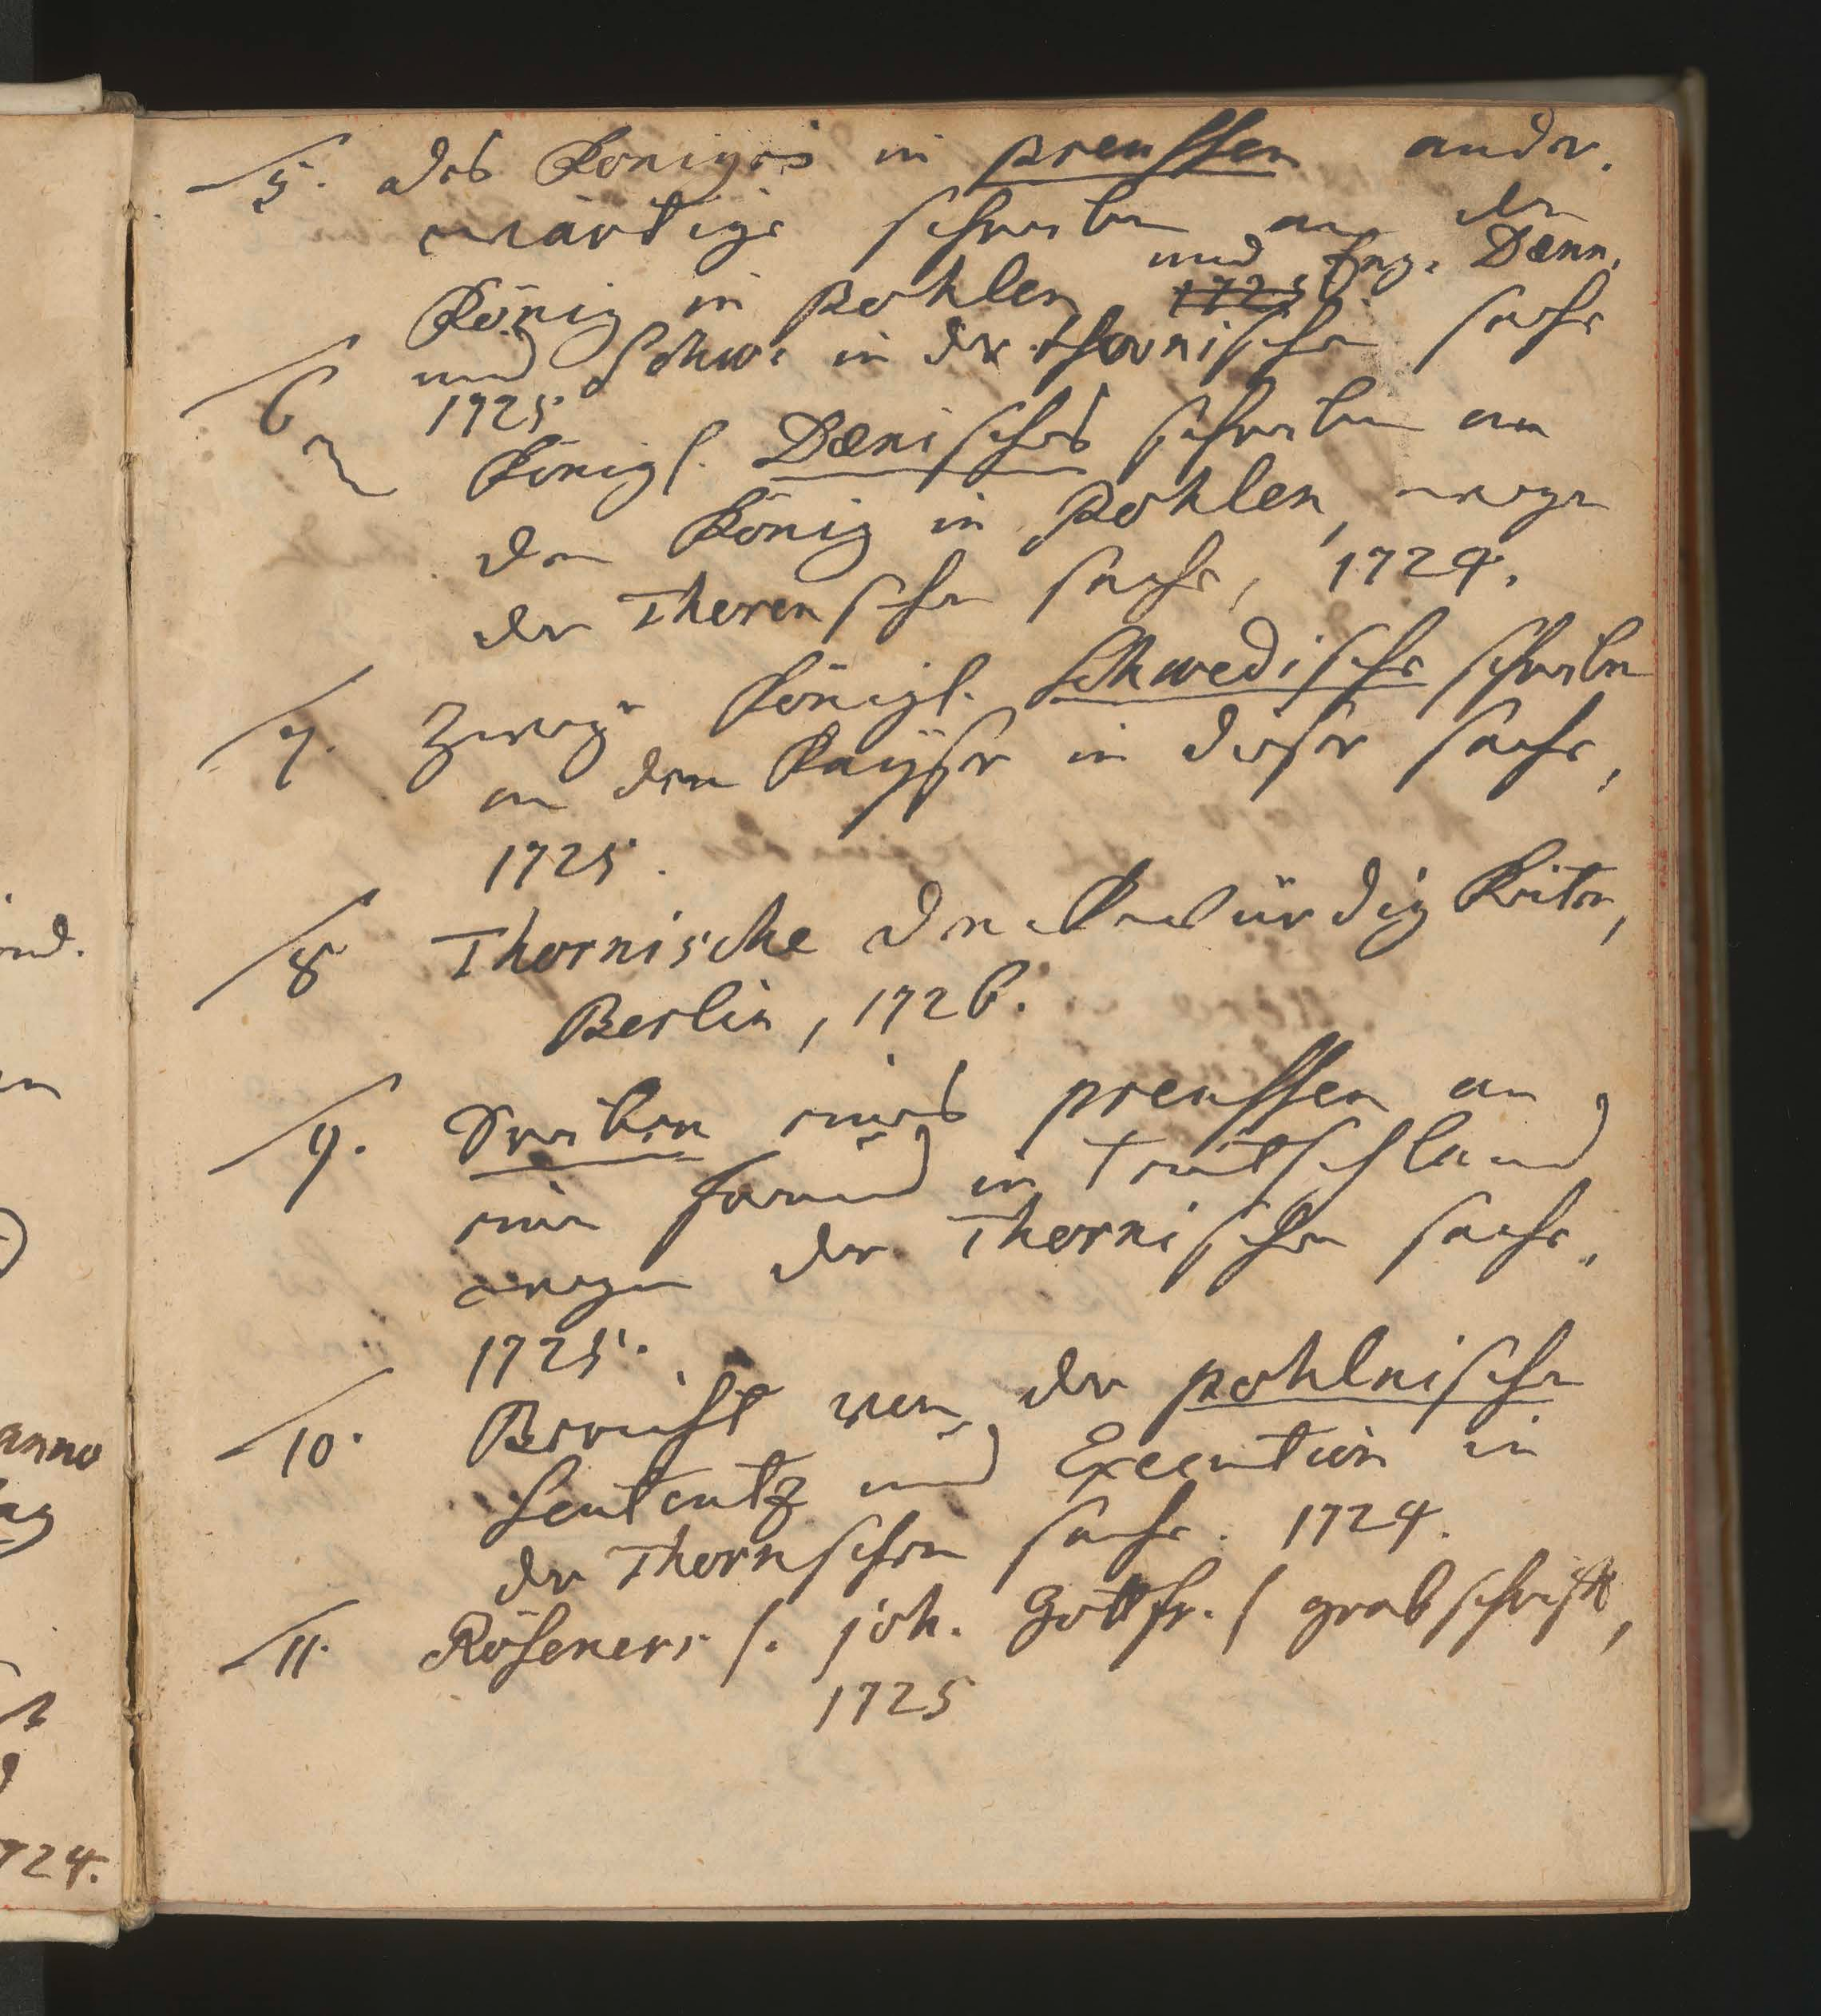 5. des Königes in preussen ander-
wärtige schreiben an den
König in Pohlen 1725 und Eng. Dænn.
und Schw: in der thornischen sache
1725
6 Königl. Dænisches schreiben an
den König in Pohlen, wegen
der Thorenschen sache, 1724.
7. Zwey Königl. Schwedische schreiben
an den Kayser in dieser sache,
1725.
8 Thornische denkwürdigkeiten,
Berlin, 1726.
9. eines preussen an
einen freund in Teutschland
wegen der Thornischen sache.
1725.
10. Bericht von der pohlnischen
Sententz und Execution in
der Thornschen sache. 1724.
11. Röseners /. joh. Gottfr. / grabschrifft,
1725
anno
724.